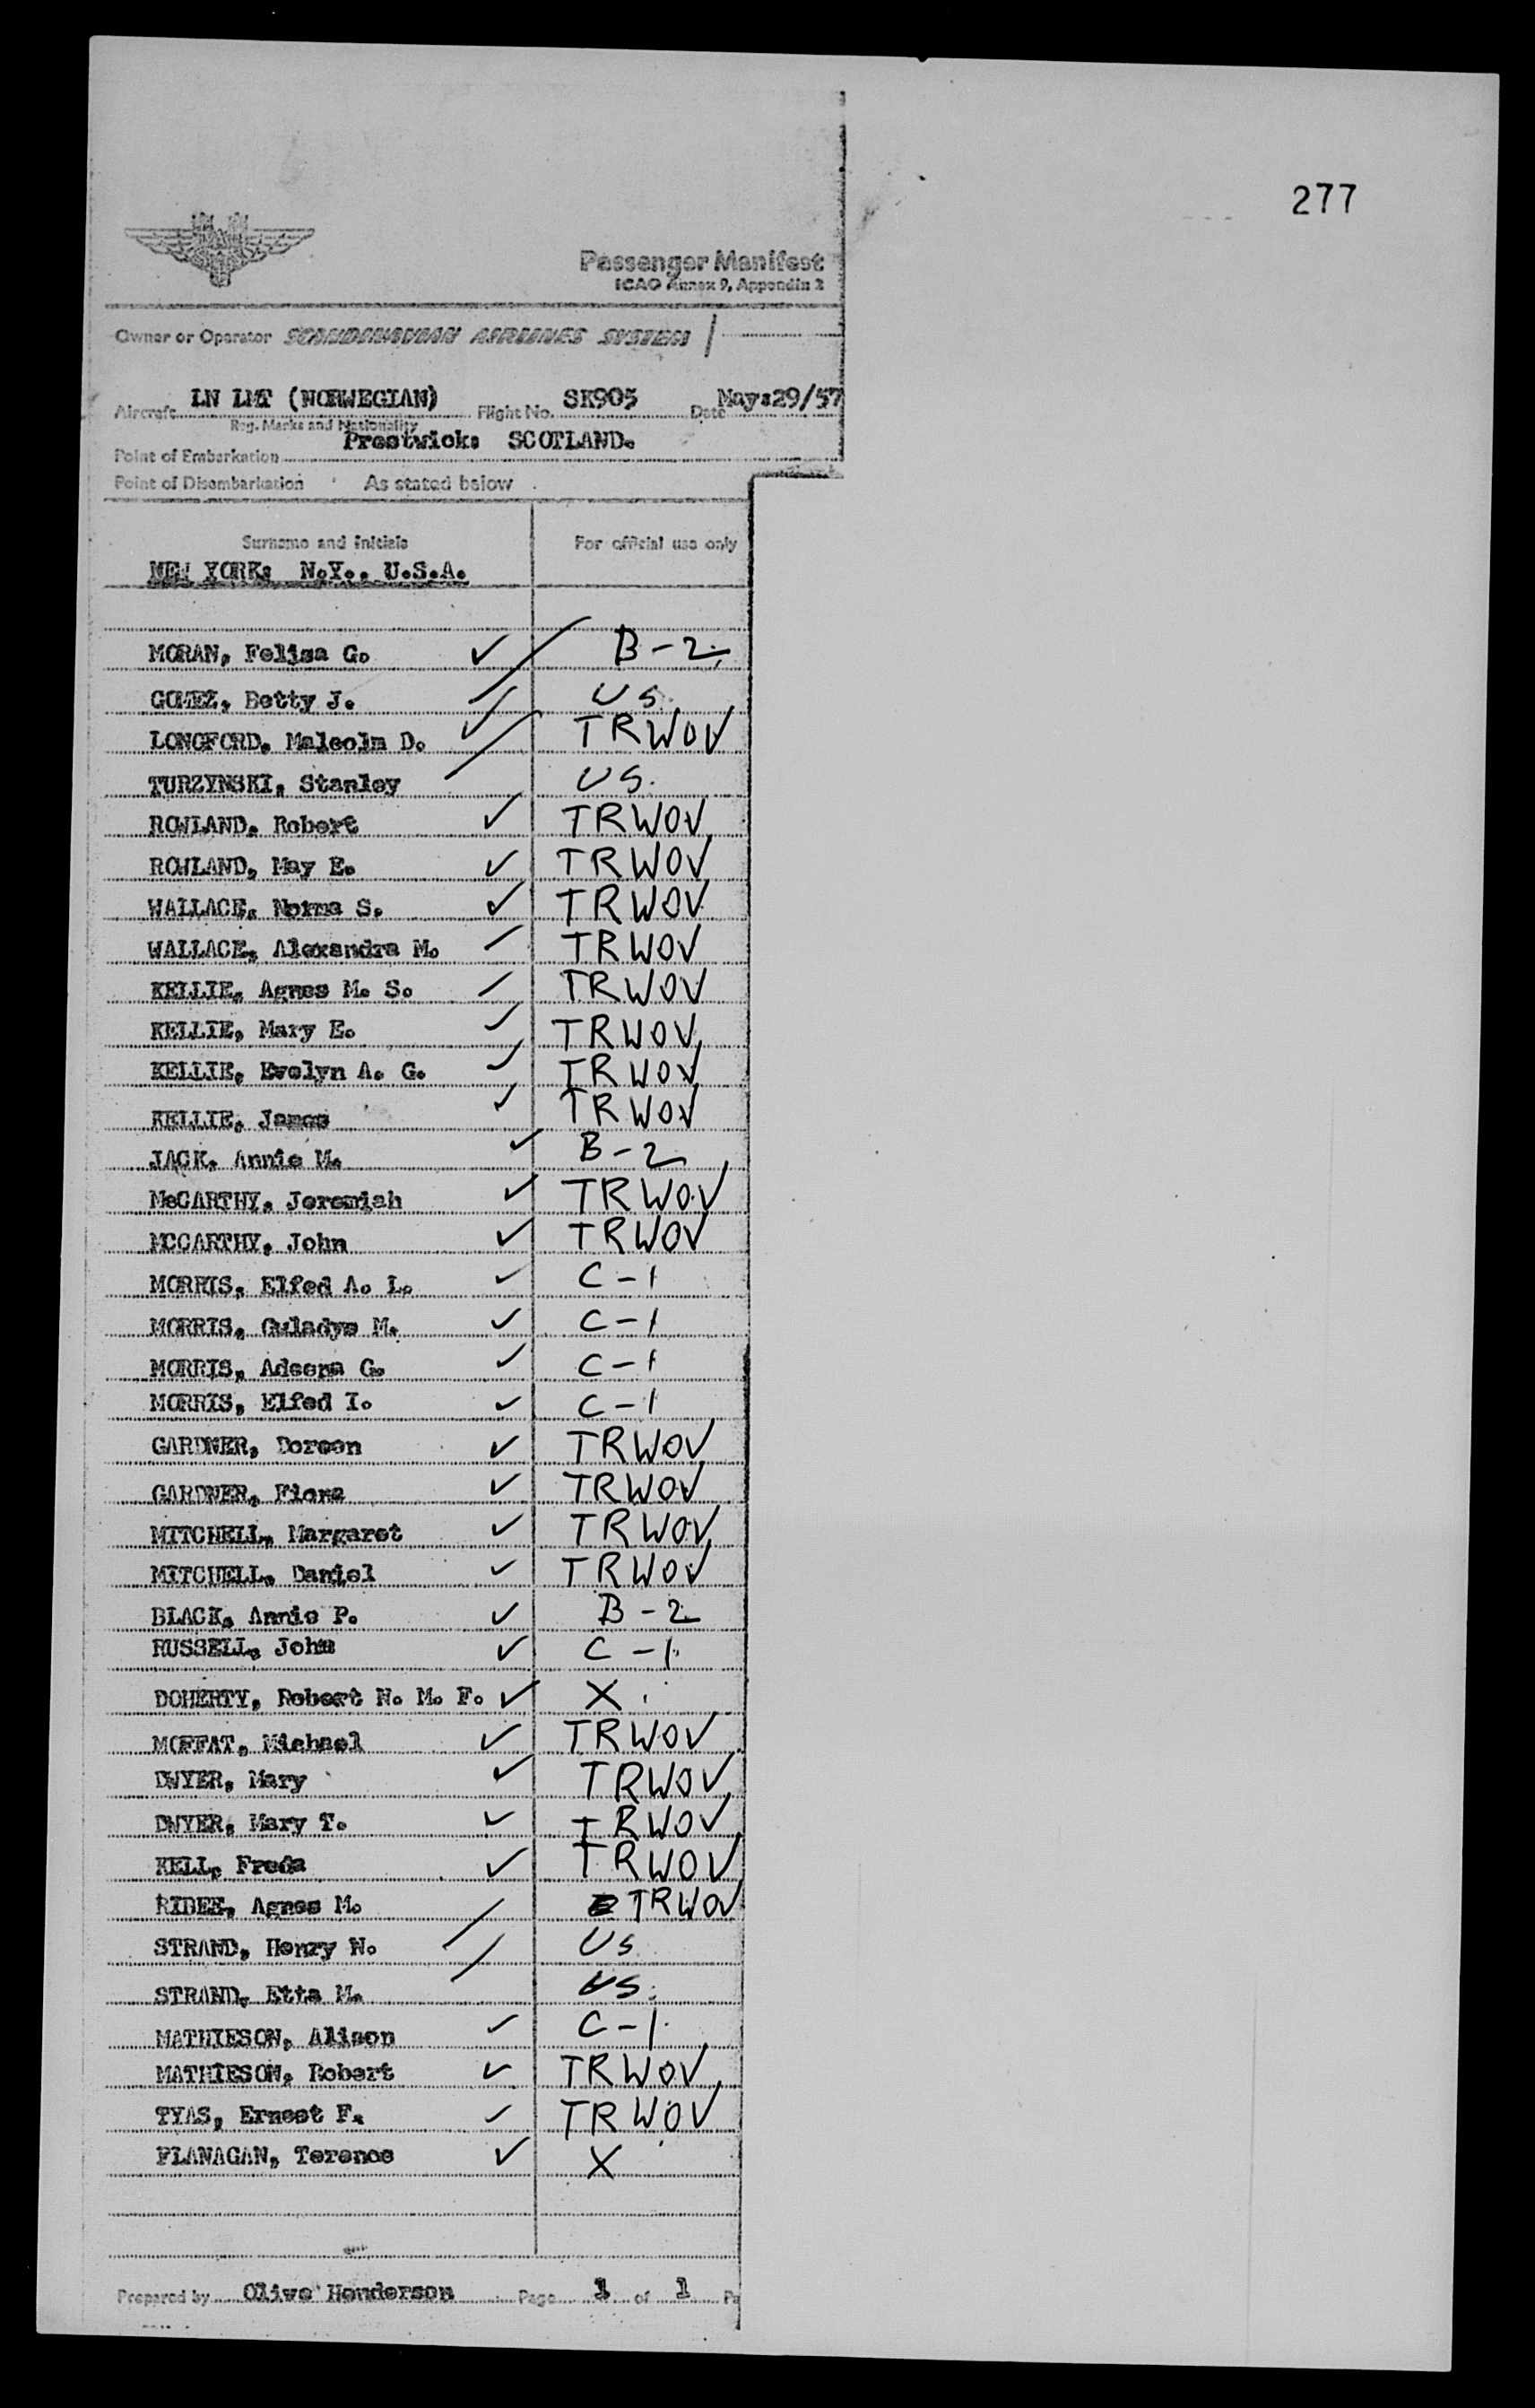 277
Passenger Manifest
ICAO Annex 9, Appendix 2
Owner or Operator SCANDINAVIAN AIRLINES SYSTEM
Aircraft LN LMT (NORWEGIAN) Flight No. SK905 Date May:29/57
Reg. Marks and Nationality
Point of Embarkation Prestwick: SCOTLAND.
Point of Disembarkation As stated below
Surname and Initials For official use only
NEW YORK: N.Y., U.S.A.
MORAN, Felisa G. ✓ B-2
GOMEZ, Betty J. US.
LONGFORD, Malcolm D. ✓ TRWOV
TURZYNSKI, Stanley US.
ROWLAND, Robert ✓ TRWOV
ROWLAND, May E. ✓ TRWOV
WALLACE, Norma S. ✓ TRWOV
WALLACE, Alexandra M. ✓ TRWOV
KELLIE, Agnes M. S. ✓ TRWOV
KELLIE, Mary E. ✓ TRWOV
KELLIE, Evelyn A. G. ✓ TRWOV
KELLIE, James ✓ TRWOV
JACK, Annie M. ✓ B-2
McCARTHY, Jeremiah ✓ TRWOV
MCCARTHY, John ✓ TRWOV
MORRIS, Elfed A. L. ✓ C-1
MORRIS, Guladys M. ✓ C-1
MORRIS, Adeera G. ✓ C-1
MORRIS, Elfed I. ✓ C-1
GARDNER, Doreen ✓ TRWOV
GARDNER, Flora ✓ TRWOV
MITCHELL, Margaret ✓ TRWOV
MITCHELL, Daniel ✓ TRWOV
BLACK, Annie P. ✓ B-2
RUSSELL, John ✓ C-1
DOHERTY, Robert N. M. F. ✓ X
MOFFAT, Michael ✓ TRWOV
DWYER, Mary ✓ TRWOV
DWYER, Mary T. ✓ TRWOV
KELL, Freda ✓ TRWOV
Agnes M. TRWOV
STRAND, Henry N. US
STRAND, Etta M. US.
MATHIESON, Alison ✓ C-1
MATHIESON, Robert ✓ TRWOV
TYAS, Ernest F. ✓ TRWOV
FLANAGAN, Terence ✓ X
Prepared by Olive Henderson Page 1 of 1 Pa